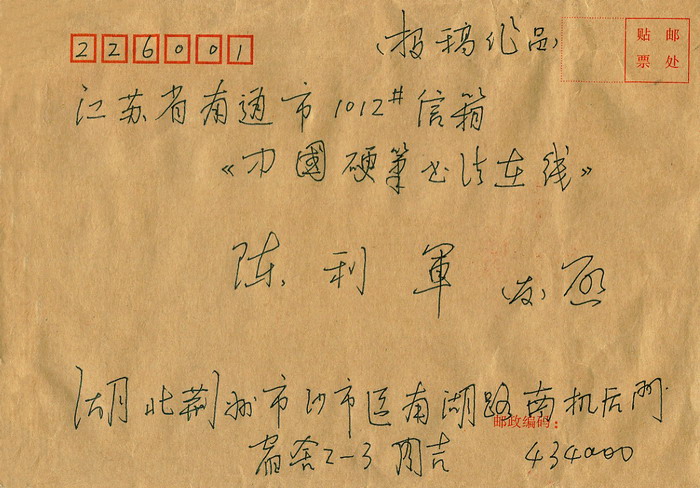 226001
(投稿作品)
贴 邮
票 处
江苏省南通市1012#信箱
《中國硬筆书法在线》
陈利軍(友)启
湖北荆州市沙市区南湖路南机后门
邮政编码:
宿舍2-3 周吉 434000